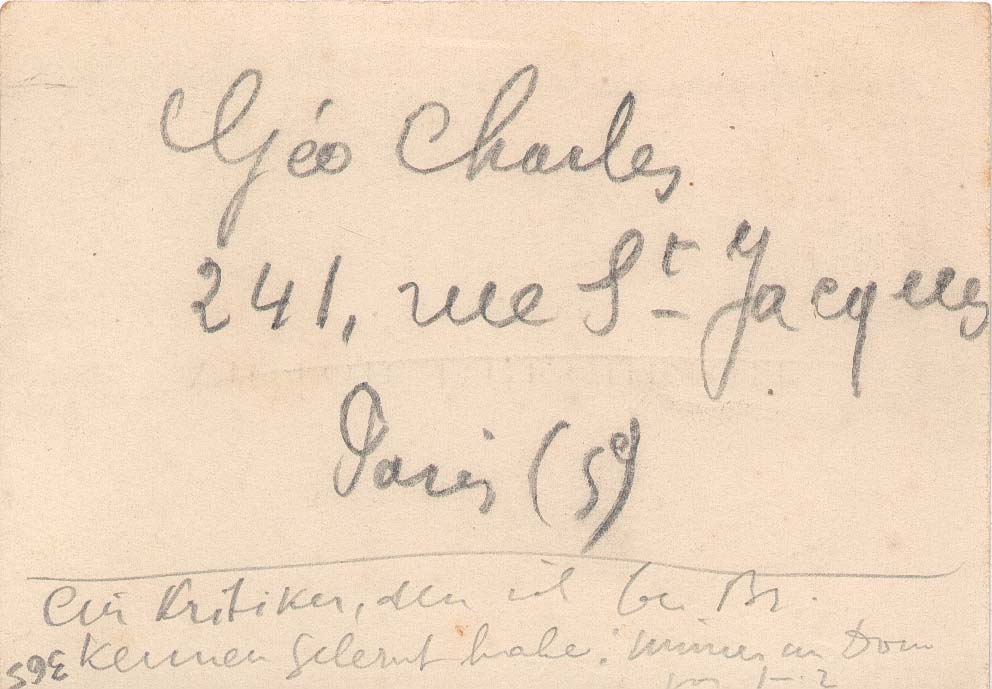 Géo Charles
241, rue St Jacques
Paris (5e)
Ein Kritiker, den ich bei Br.
kennen gelernt habe. immer im Dom
365